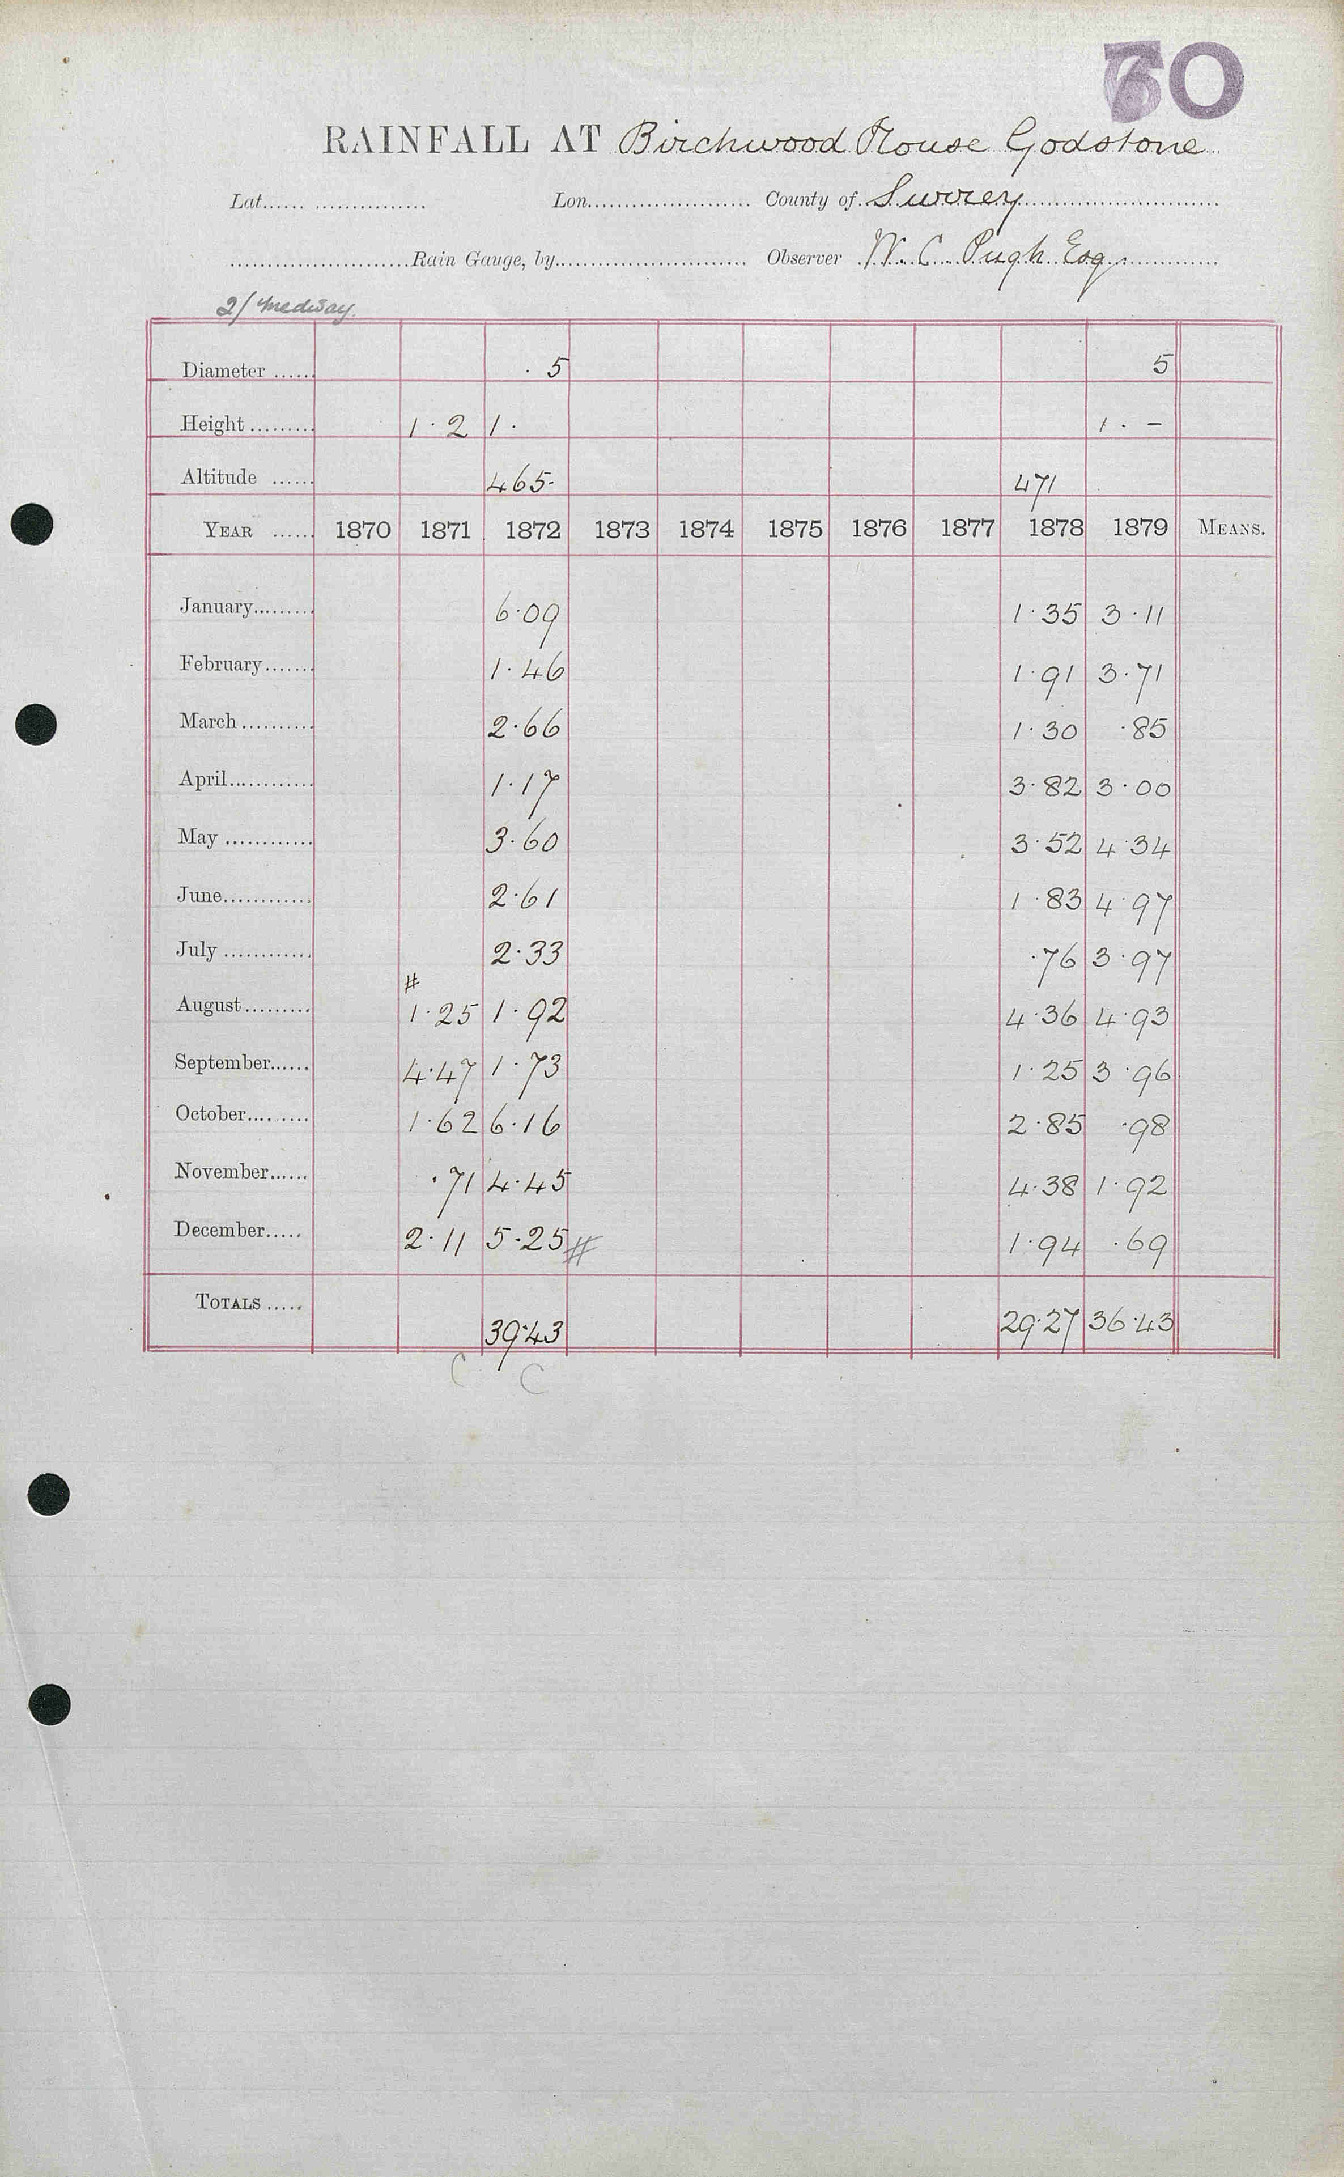 60
RAINFALL AT Birchwood House Godstone
Lat. Lon. County of Surrey
Rain Gauge, by Observer W. C. Pugh Esq
2/ Medway.
Diameter . 5 5
Height 1.2 1. 1. -
Altitude 465. 471
YEAR 1870 1871 1872 1873 1874 1875 1876 1877 1878 1879 MEANS.
January 6.09 1.35 3.11
February 1.46 1.91 3.71
March 2.66 1.30 .85
April 1.17 3.82 3.00
May 3.60 3.52 4.34
June 2.61 1.83 4.97
July 2.33 .76 3.97
#
August 1.25 1.92 4.36 4.93
September 4.47 1.73 1.25 3.96
October 1.62 6.16 2.85 .98
November .71 4.45 4.38 1.92
December 2.11 5.25 # 1.94 .69
TOTALS 39.43 29.27 36.43
C C